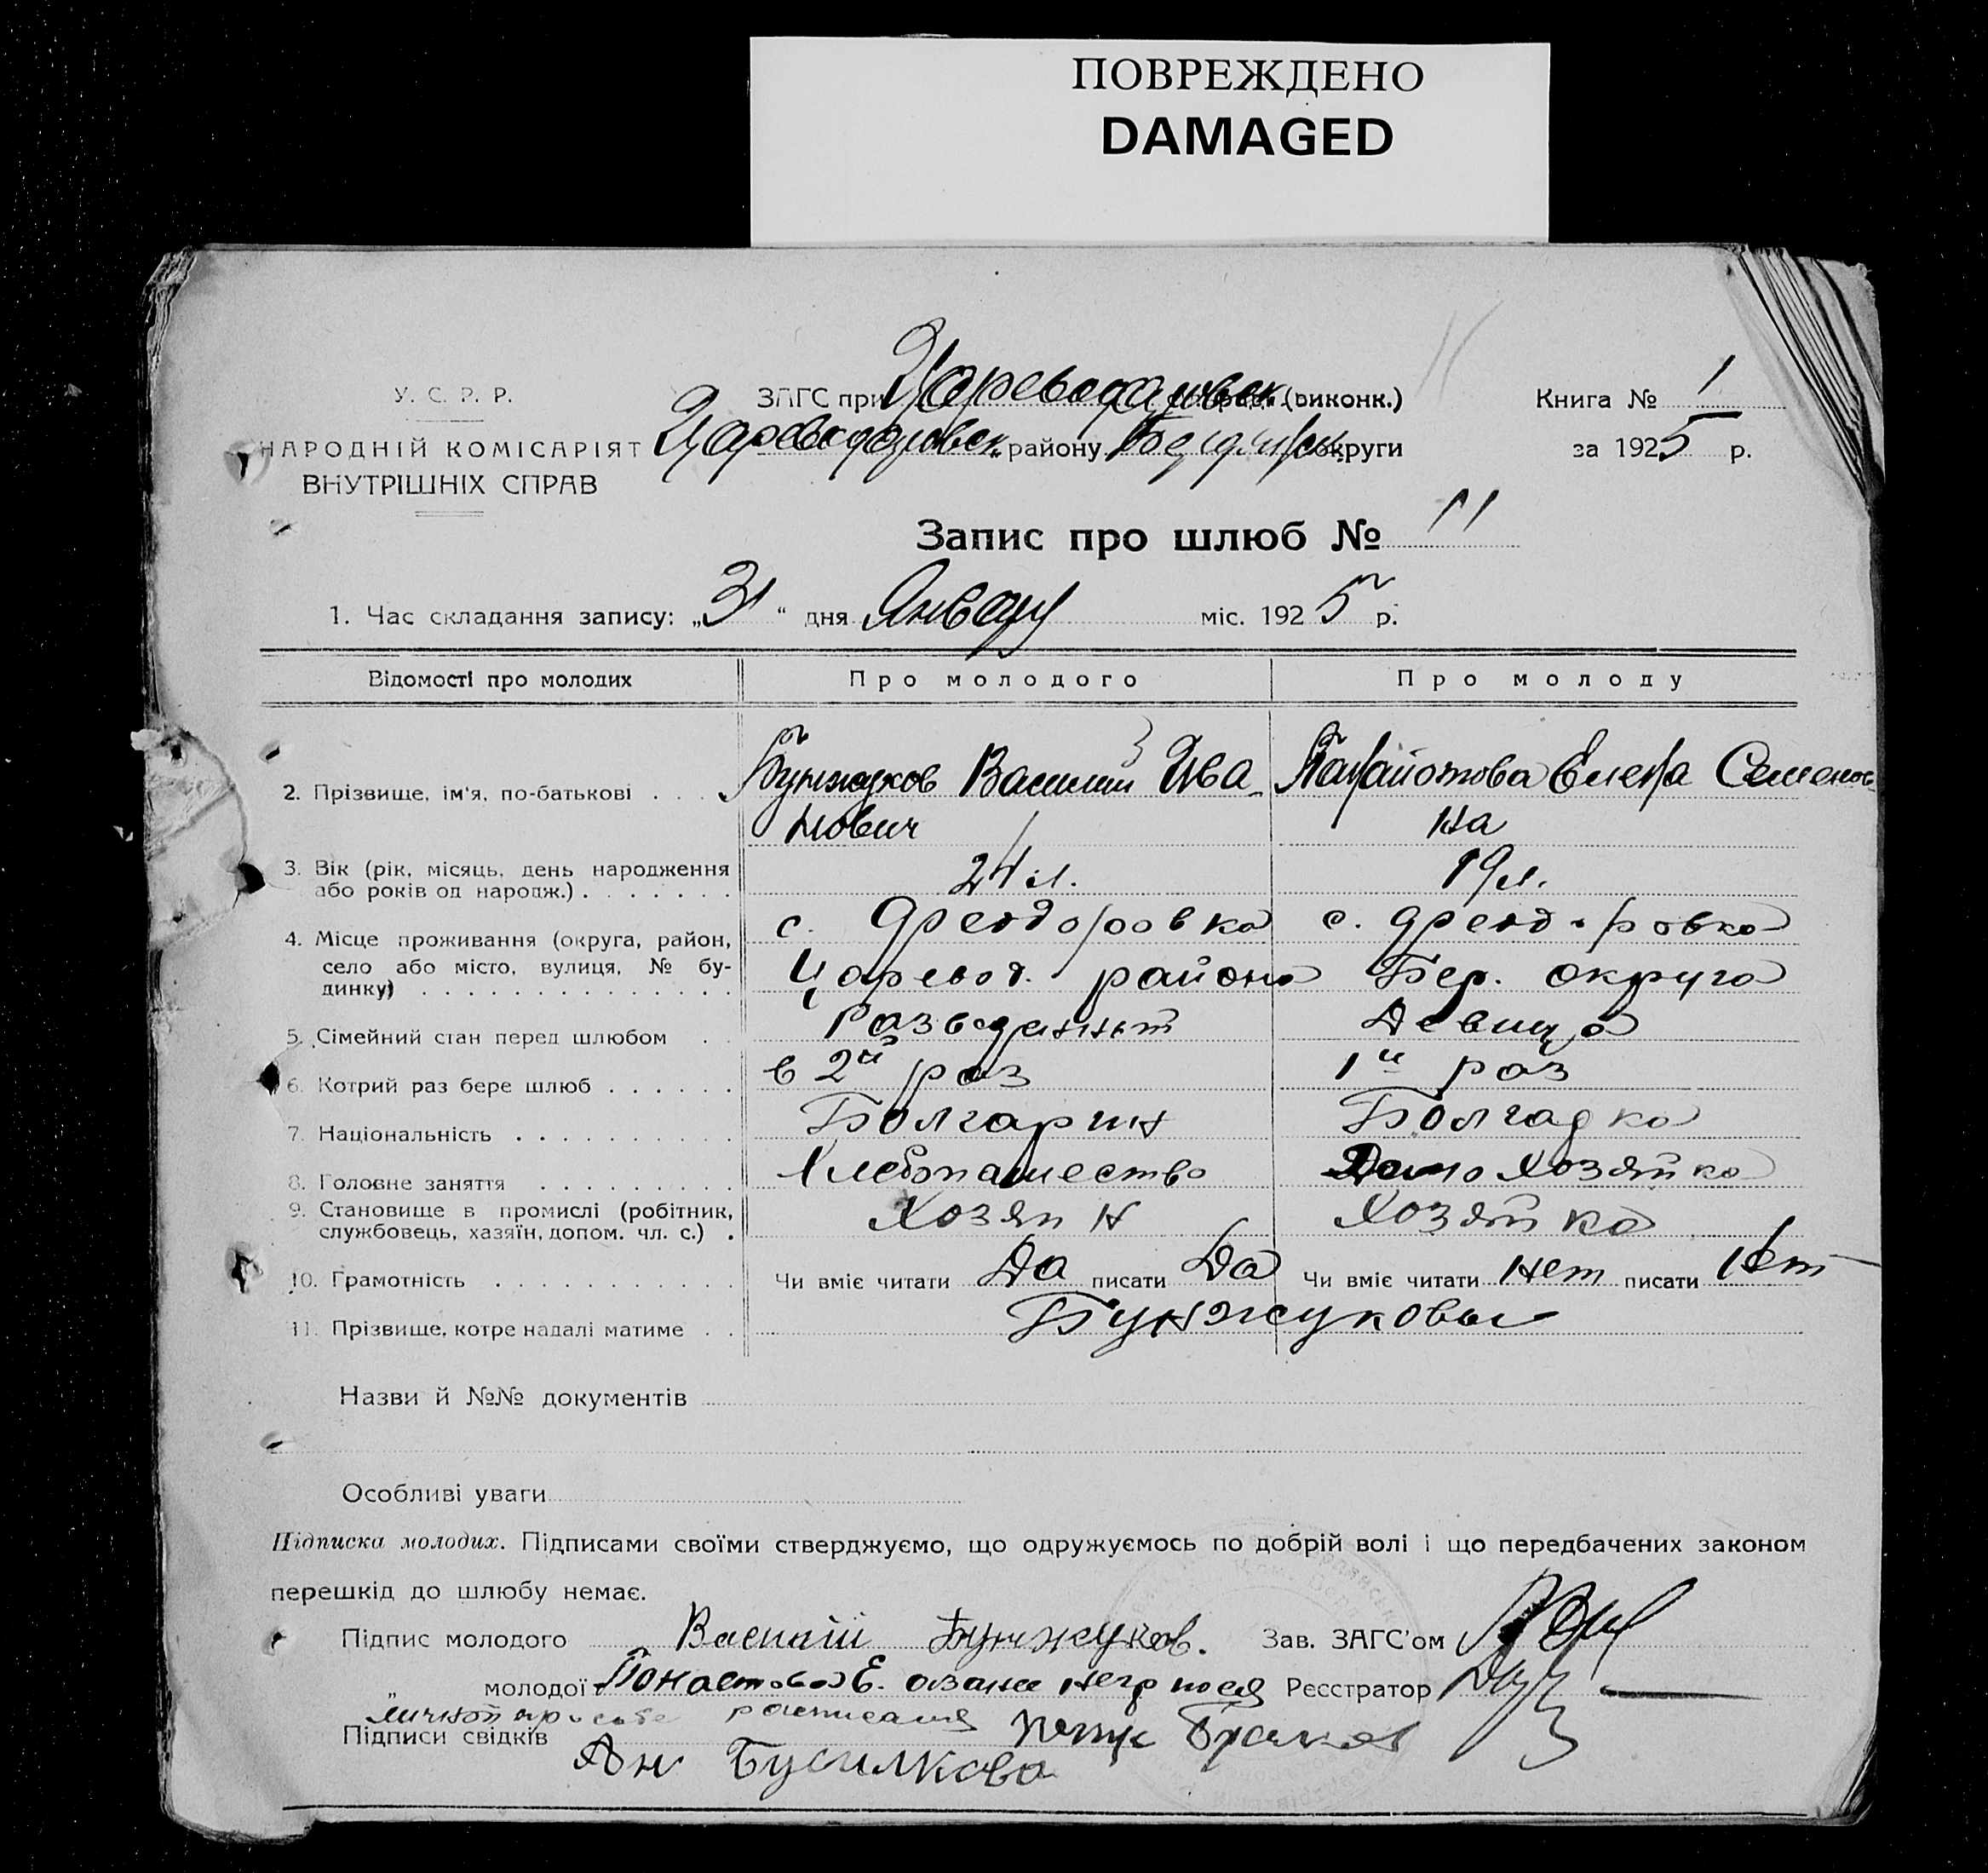 ПОВРЕЖДЕНО
DAMAGED
У. С. Р. Р.
НАРОДНІЙ КОМІСАРІЯТ
ВНУТРІШНІХ СПРАВ
ЗАГС при Цареводаровск (виконк.)
Цареводаровск району округи
Книга № 1
за 1925 р.
Запис про шлюб № 11
1. Час складання запису: „31“ дня Января міс. 1925 р.
Відомості про молодих Про молодого Про молоду
2. Прізвище, ім'я, по-батькові . . . Бунжуков Василий Ива Елена Семенов
нович на
3. Вік (рік, місяць, день народження
або років од народж.) . . . . . . . 24 л. 19 л.
4. Місце проживання (округа, район, с. Феодоровка с. Феодоровка
село або місто, вулиця, № бу-
динку) . . . . . . . . . . . . . . Царевод. района Бер. округа
5. Сімейний стан перед шлюбом . . Разведенный Девица
6. Котрий раз бере шлюб . . . . . . в 2й раз 1й раз
7. Національність . . . . . . . . . . Болгарин Болгарка
8. Головне заняття . . . . . . . . . Хлебопашество Домохозяйка
9. Становище в промислі (робітник,
службовець, хазяїн, допом. чл. с.) . Хозяин Хозяйка
10. Грамотність . . . . . . . . . . . Чи вміє читати Да писати Да Чи вміє читати нет писати нет
11. Прізвище, котре надалі матиме . . Бунжуковы
Назви й №№ документів
Особливі уваги
Підписка молодих. Підписами своїми стверджуємо, що одружуємось по добрій волі і що передбачених законом
перешкід до шлюбу немає.
Підпис молодого Василий Бунжуков. Зав. ЗАГС'ом
„ молодої Е. Реєстратор
личной просьбе расписался
Підписи свідків